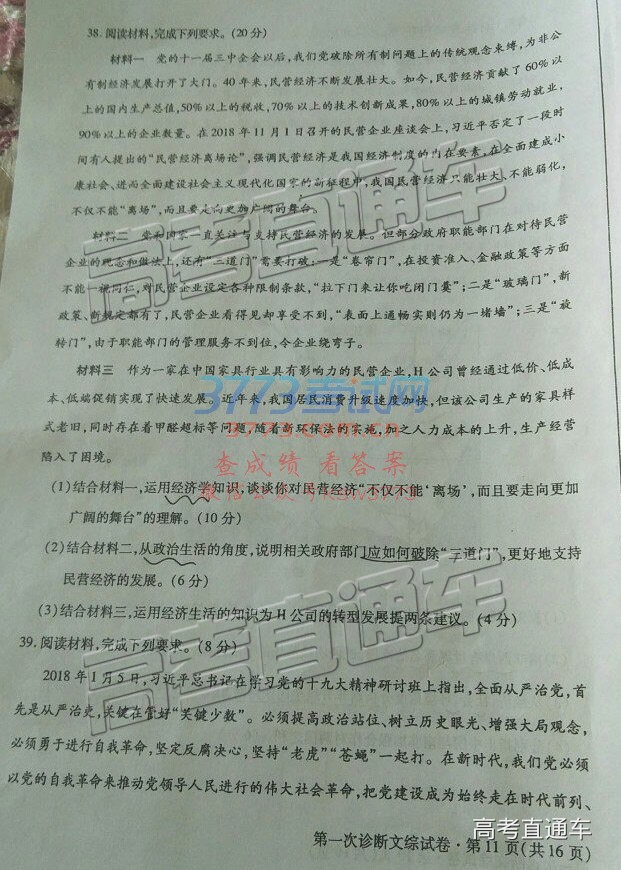 38. 阅读材料,完成下列要求。(20分)
材料一 党的十一届三中全会以后,我们党破除所有制问题上的传统观念束缚,为非公
有制经济发展打开了大门。40年来,民营经济不断发展壮大。如今,民营经济贡献了60%以
上的国内生产总值,50%以上的税收,70%以上的技术创新成果,80%以上的城镇劳动就业,
90%以上的企业数量。在2018年11月1日召开的民营企业座谈会上,习近平否定了一段时
间有人提出的“民营经济离场论”,强调民营经济是我国经济制度的内在要素,在全面建成小
康社会、进而全面建设社会主义现代化国家的新征程中,我国民营经济只能壮大、不能弱化,
不仅不能“离场”,而且要走向更加广阔的舞台。
材料二 党和国家一直关注与支持民营经济的发展。但部分政府职能部门在对待民营
企业的观念和做法上,还有“三道门”需要打破:一是“卷帘门”,在投资准入、金融政策等方面
不能一视同仁,对民营企业设定各种限制条款,“拉下门来让你吃闭门羹”;二是“玻璃门”,新
政策、新规定都有了,民营企业看得见却享受不到,“表面上通畅实则仍为一堵墙”;三是“旋
转门”,由于职能部门的管理服务不到位,令企业绕弯子。
材料三 作为一家在中国家具行业具有影响力的民营企业,H公司曾经通过低价、低成
本、低端促销实现了快速发展。近年来,我国居民消费升级速度加快,但该公司生产的家具样
式老旧,同时存在着甲醛超标等问题,随着新环保法的实施,加之人力成本的上升,生产经营
陷入了困境。
(1)结合材料一,运用经济学知识,谈谈你对民营经济“不仅不能‘离场’,而且要走向更加
广阔的舞台”的理解。(10分)
(2)结合材料二,从政治生活的角度,说明相关政府部门应如何破除“三道门”,更好地支持
民营经济的发展。(6分)
(3)结合材料三,运用经济生活的知识为H公司的转型发展提两条建议。(4分)
39. 阅读材料,完成下列要求。(8分)
2018年1月5日,习近平总书记在学习党的十九大精神研讨班上指出,全面从严治党,首
先是从严治吏,关键在管好“关键少数”。必须提高政治站位、树立历史眼光、增强大局观念,
必须勇于进行自我革命,坚定反腐决心,坚持“老虎”“苍蝇”一起打。在新时代,我们党必须
以党的自我革命来推动党领导人民进行的伟大社会革命,把党建设成为始终走在时代前列、
第一次诊断文综试卷·第11页(共16页)
高考直通车
高考直通车
高考直通车
3773考试网
3773.com.cn
查成绩 看答案